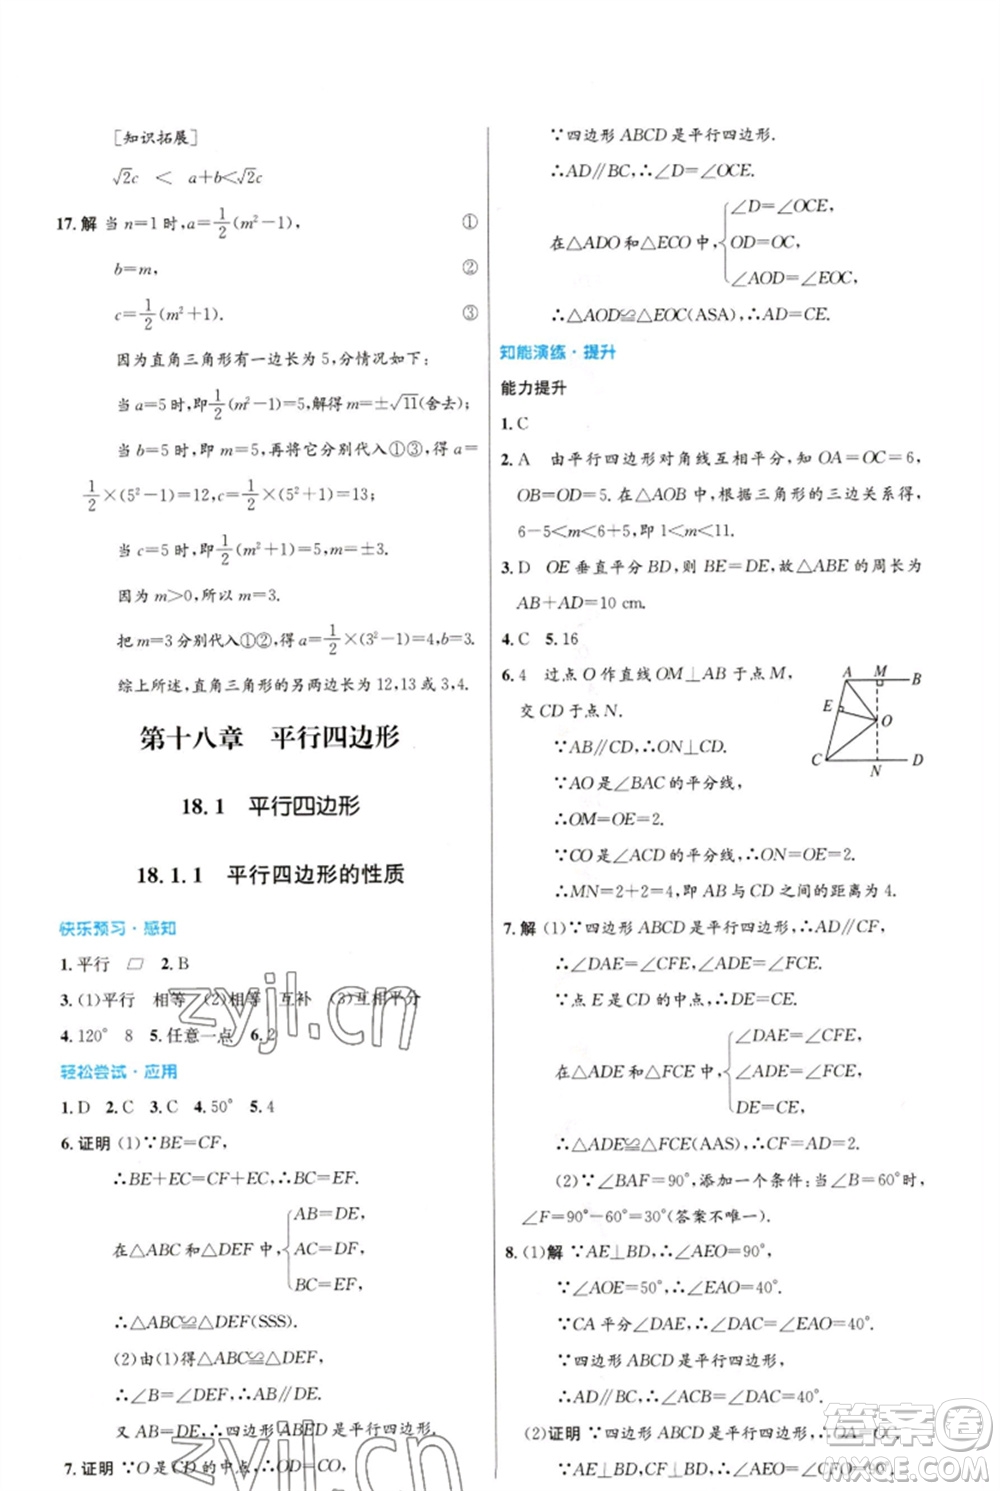 [知识拓展]
√2c < a+b<√2c
17.解 当 n=1 时,a=1/2(m²-1), ①
b=m, ②
c=1/2(m²+1). ③
因为直角三角形有一边长为 5,分情况如下:
当 a=5 时,即1/2(m²-1)=5,解得 m=±√11(舍去);
当 b=5 时,即 m=5,再将它分别代入①③,得 a=
1/2×(5²-1)=12,c=1/2×(5²+1)=13;
当 c=5 时,即1/2(m²+1)=5,m=±3.
因为 m>0,所以 m=3.
把 m=3 分别代入①②,得 a=1/2×(3²-1)=4,b=3.
综上所述,直角三角形的另两边长为 12,13 或 3,4.
第十八章 平行四边形
18.1 平行四边形
18.1.1 平行四边形的性质
快乐预习·感知
1.平行 ▱ 2.B
3.(1)平行 相等 (2)相等 互补 (3)互相平分
4.120° 8 5.任意一点 6.2
轻松尝试·应用
1.D 2.C 3.C 4.50° 5.4
6.证明 (1)∵BE=CF,
∴BE+EC=CF+EC,∴BC=EF.
在△ABC 和△DEF 中,{AB=DE,
AC=DF,
BC=EF,
∴△ABC≌△DEF(SSS).
(2)由(1)得△ABC≌△DEF,
∴∠B=∠DEF,∴AB∥DE.
又 AB=DE,∴四边形 ABED 是平行四边形.
7.证明 ∵O 是 CD 的中点,∴OD=CO.
∵四边形 ABCD 是平行四边形.
∴AD∥BC,∴∠D=∠OCE.
在△ADO 和△ECO 中,{∠D=∠OCE,
OD=OC,
∠AOD=∠EOC,
∴△AOD≌△EOC(ASA),∴AD=CE.
知能演练·提升
能力提升
1.C
2.A 由平行四边形对角线互相平分,知 OA=OC=6,
OB=OD=5.在△AOB 中,根据三角形的三边关系得,
6-5<m<6+5,即 1<m<11.
3.D OE 垂直平分 BD,则 BE=DE,故△ABE 的周长为
AB+AD=10 cm.
4.C 5.16
6.4 过点 O 作直线 OM⊥AB 于点 M,
交 CD 于点 N.
∵AB∥CD,∴ON⊥CD.
∵AO 是∠BAC 的平分线,
∴OM=OE=2.
∵CO 是∠ACD 的平分线,∴ON=OE=2.
∴MN=2+2=4,即 AB 与 CD 之间的距离为 4.
A M B
E O
C N D
7.解 (1)∵四边形 ABCD 是平行四边形,∴AD∥CF.
∴∠DAE=∠CFE,∠ADE=∠FCE.
∵点 E 是 CD 的中点,∴DE=CE.
在△ADE 和△FCE 中,{∠DAE=∠CFE,
∠ADE=∠FCE,
DE=CE,
∴△ADE≌△FCE(AAS),∴CF=AD=2.
(2)∵∠BAF=90°,添加一个条件:当∠B=60°时,
∠F=90°-60°=30°(答案不唯一).
8.(1)解 ∵AE⊥BD,∴∠AEO=90°,
∵∠AOE=50°,∴∠EAO=40°.
∵CA 平分∠DAE,∴∠DAC=∠EAO=40°.
∵四边形 ABCD 是平行四边形,
∴AD∥BC,∴∠ACB=∠DAC=40°.
(2)证明 ∵四边形 ABCD 是平行四边形,∴OA=OC,
∵AE⊥BD,CF⊥BD,∴∠AEO=∠CFO=90°,
zyjl.cn
zyjl.cn
答案圈